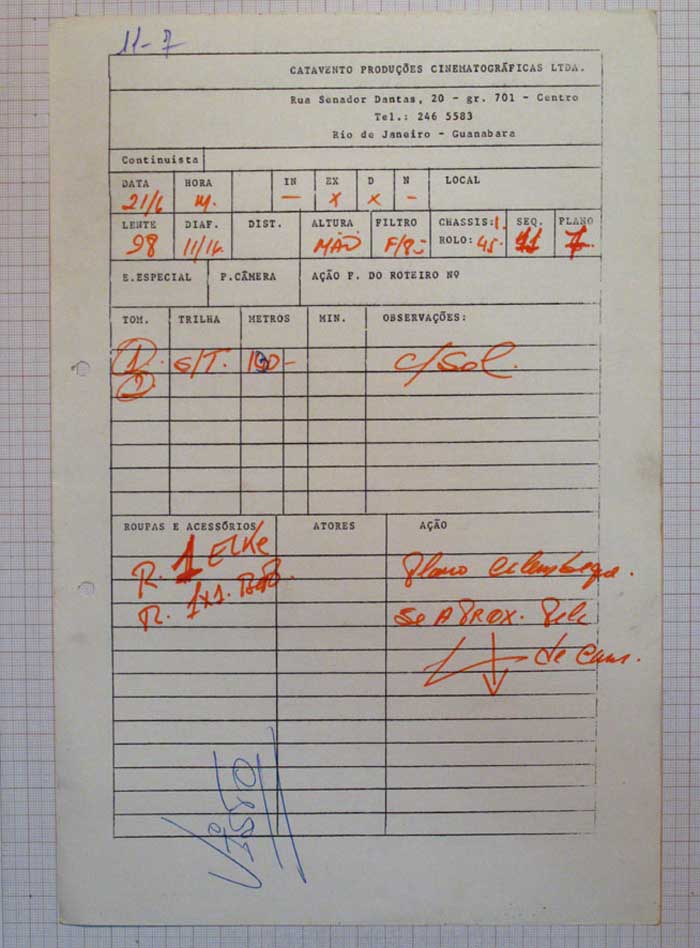 11-7
CATAVENTO PRODUÇÕES CINEMATOGRÁFICAS LTDA.
Rua Senador Dantas, 20 - gr. 701 - Centro
Tel.: 246 5583
Rio de Janeiro - Guanabara
Continuista
DATA HORA IN EX D N LOCAL
21/6 M. — X X -
LENTE DIAF. DIST. ALTURA FILTRO CHASSIS: 1. SEQ. PLANO
98 11/16 MÃO ROLO: 45. 11 7
E.ESPECIAL P.CÂMERA AÇÃO P. DO ROTEIRO Nº
TOM. TRILHA METROS MIN. OBSERVAÇÕES:
1. S/T. c/sol.
2
ROUPAS E ACESSÓRIOS ATORES AÇÃO
R. 1 ELKE
R. 1x1. Plano
SE APROX.
de cam.